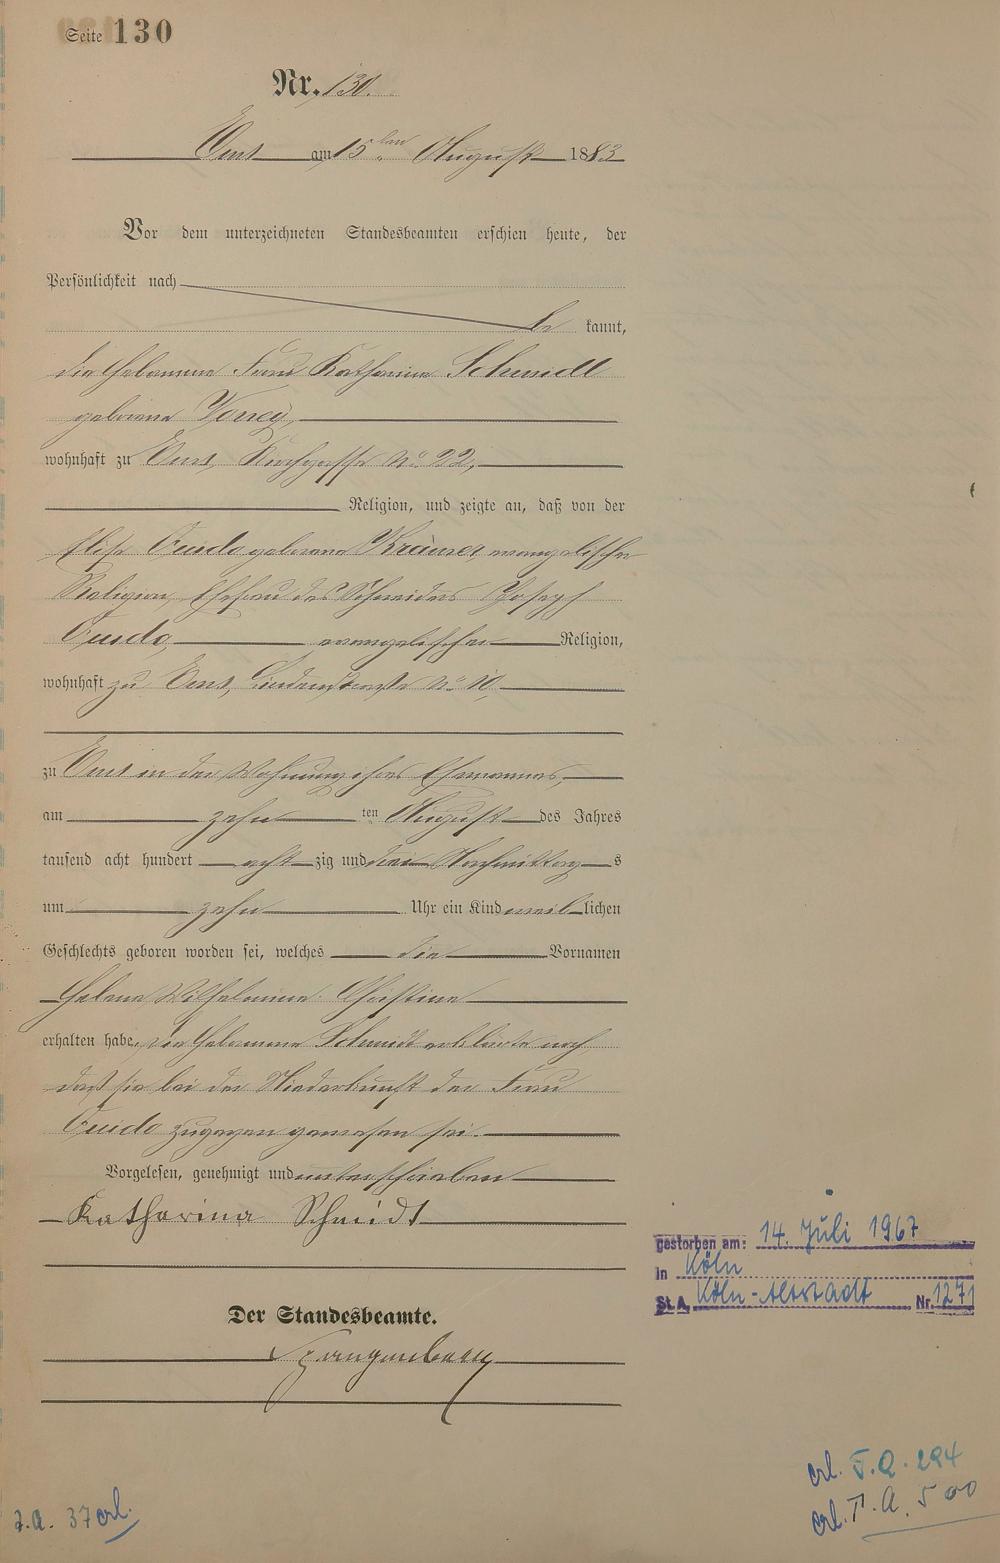 Seite 130
Nr. 130.
Ems am 15ten August 1883
Vor dem unterzeichneten Standesbeamten erschien heute, der
Persönlichkeit nach
be kannt,
die Hebamme Frau Katharina Schmidt
geborene
wohnhaft zu Ems, Kirchgasse No 22,
Religion, und zeigte an, daß von der
Elise Guido geborene Krämer, evangelischer
Religion, Ehefrau des Schneiders Joseph
Guido, evangelischer Religion,
wohnhaft zu Ems, Lindenstraße No 10,
zu Ems in der Wohnung ihres Ehemannes,
am zehn ten August des Jahres
tausend acht hundert acht zig und drei Nachmittag s
um zehn Uhr ein Kind weib lichen
Geschlechts geboren worden sei, welches die Vornamen
Helene Wilhelmine Christine
erhalten habe, die Hebamme Schmidt erklärte noch
daß sie bei der Niederkunft der Frau
Guido zugegen gewesen sei.
Vorgelesen, genehmigt und unterschrieben
Katharina Schmidt
gestorben am: 14. Juli 1967
in Köln
St.A. Köln-Altstadt Nr. 1271
Der Standesbeamte.
Spangenberg
erl. T.A. 294
erl. T.A. 500
z.a. 37 erl.